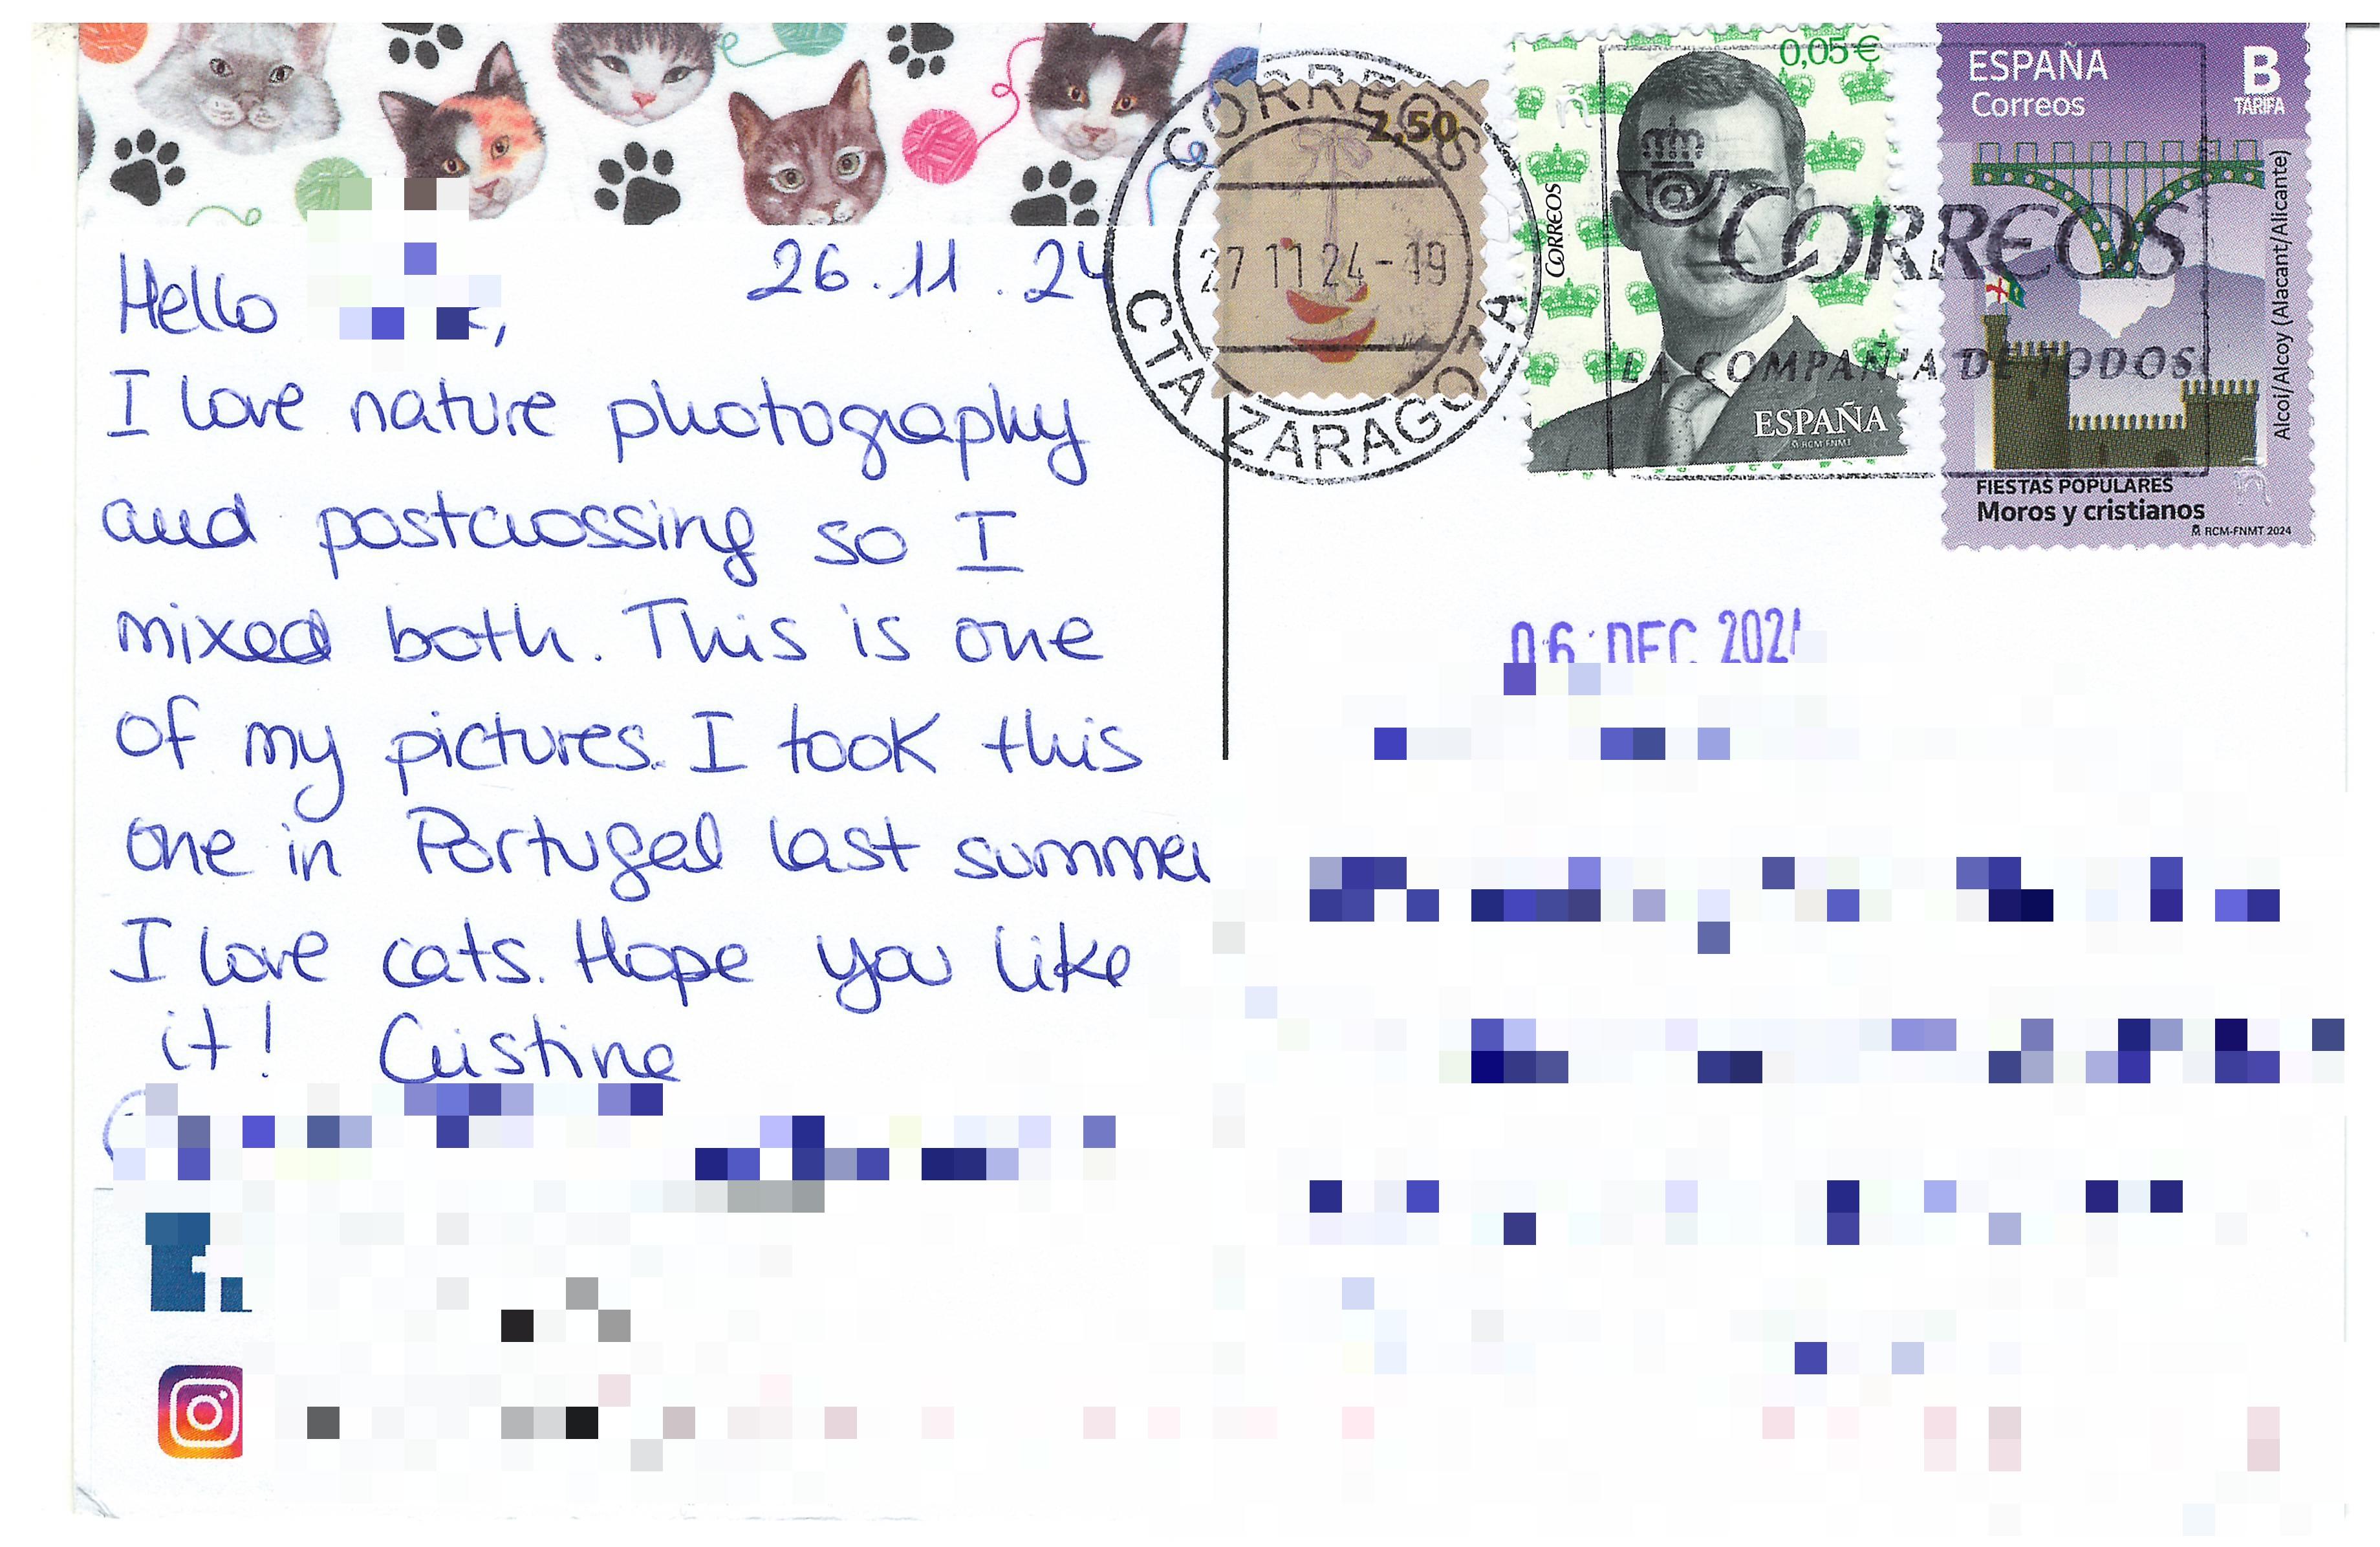 Hello
26.11.24
I love nature photography
and postcrossing so I
mixed both. This is one
of my pictures. I took this
one in Portugal last summer
I love cats. Hope you like
it! Cristina
CORREOS
2,50
27 11 24 - 19
CTA ZARAGOZA
0,05€
CORREOS
ESPAÑA
RCM-FNMT
CORREOS
LA COMPAÑIA DE TODOS
ESPAÑA
Correos
B
TARIFA
Alcoi/Alcoy (Alacant/Alicante)
FIESTAS POPULARES
Moros y cristianos
RCM-FNMT 2024
06 DEC 2024